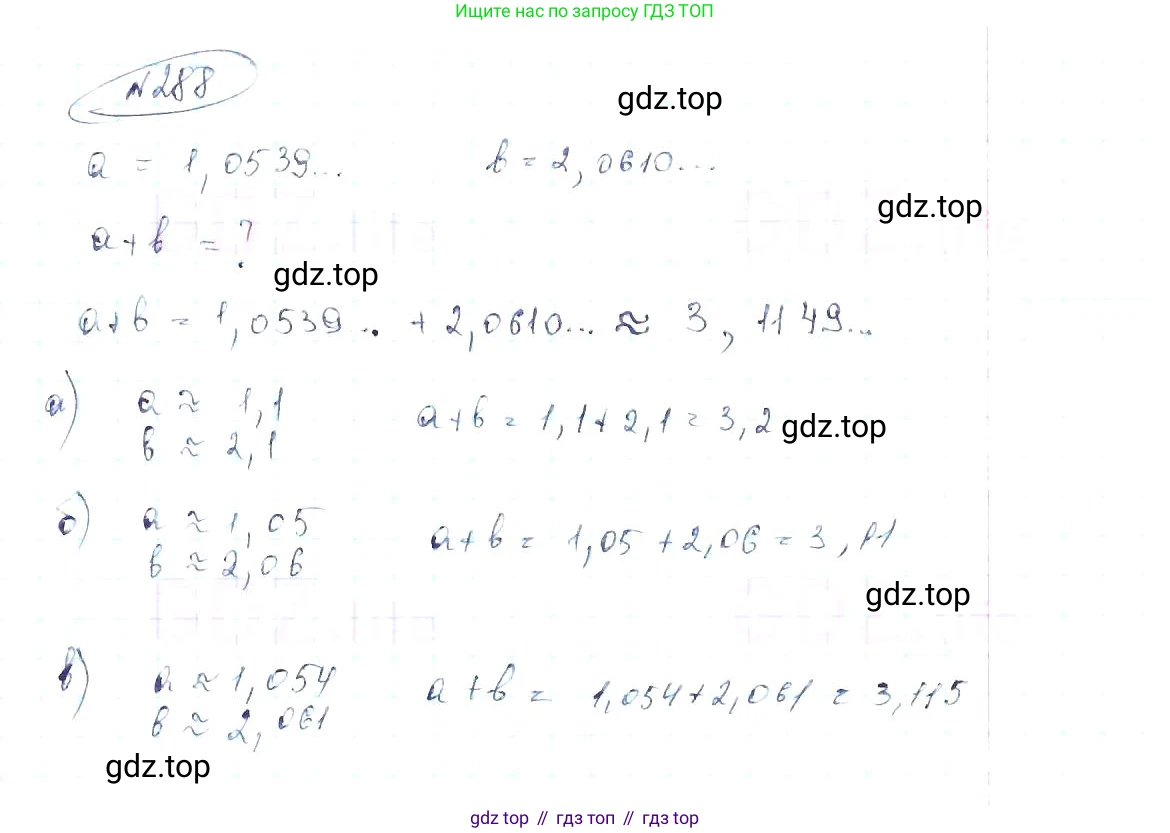 Ищите нас по запросу ГДЗ ТОП
N288
gdz.top
a = 1,0539... b = 2,0610...
gdz.top
a+b = ?
gdz.top
a+b = 1,0539... + 2,0610... ≈ 3,1149...
а) a ≈ 1,1
b ≈ 2,1
a+b = 1,1+2,1 = 3,2
gdz.top
б) a ≈ 1,05
b ≈ 2,06
a+b = 1,05+2,06 = 3,11
gdz.top
в) a ≈ 1,054
b ≈ 2,061
a+b = 1,054+2,061 = 3,115
gdz.top
gdz top // гдз топ // gdz top